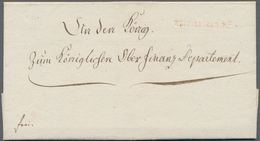 An den König.
Zum Königlichen Ober Finanz Departement.
frei.